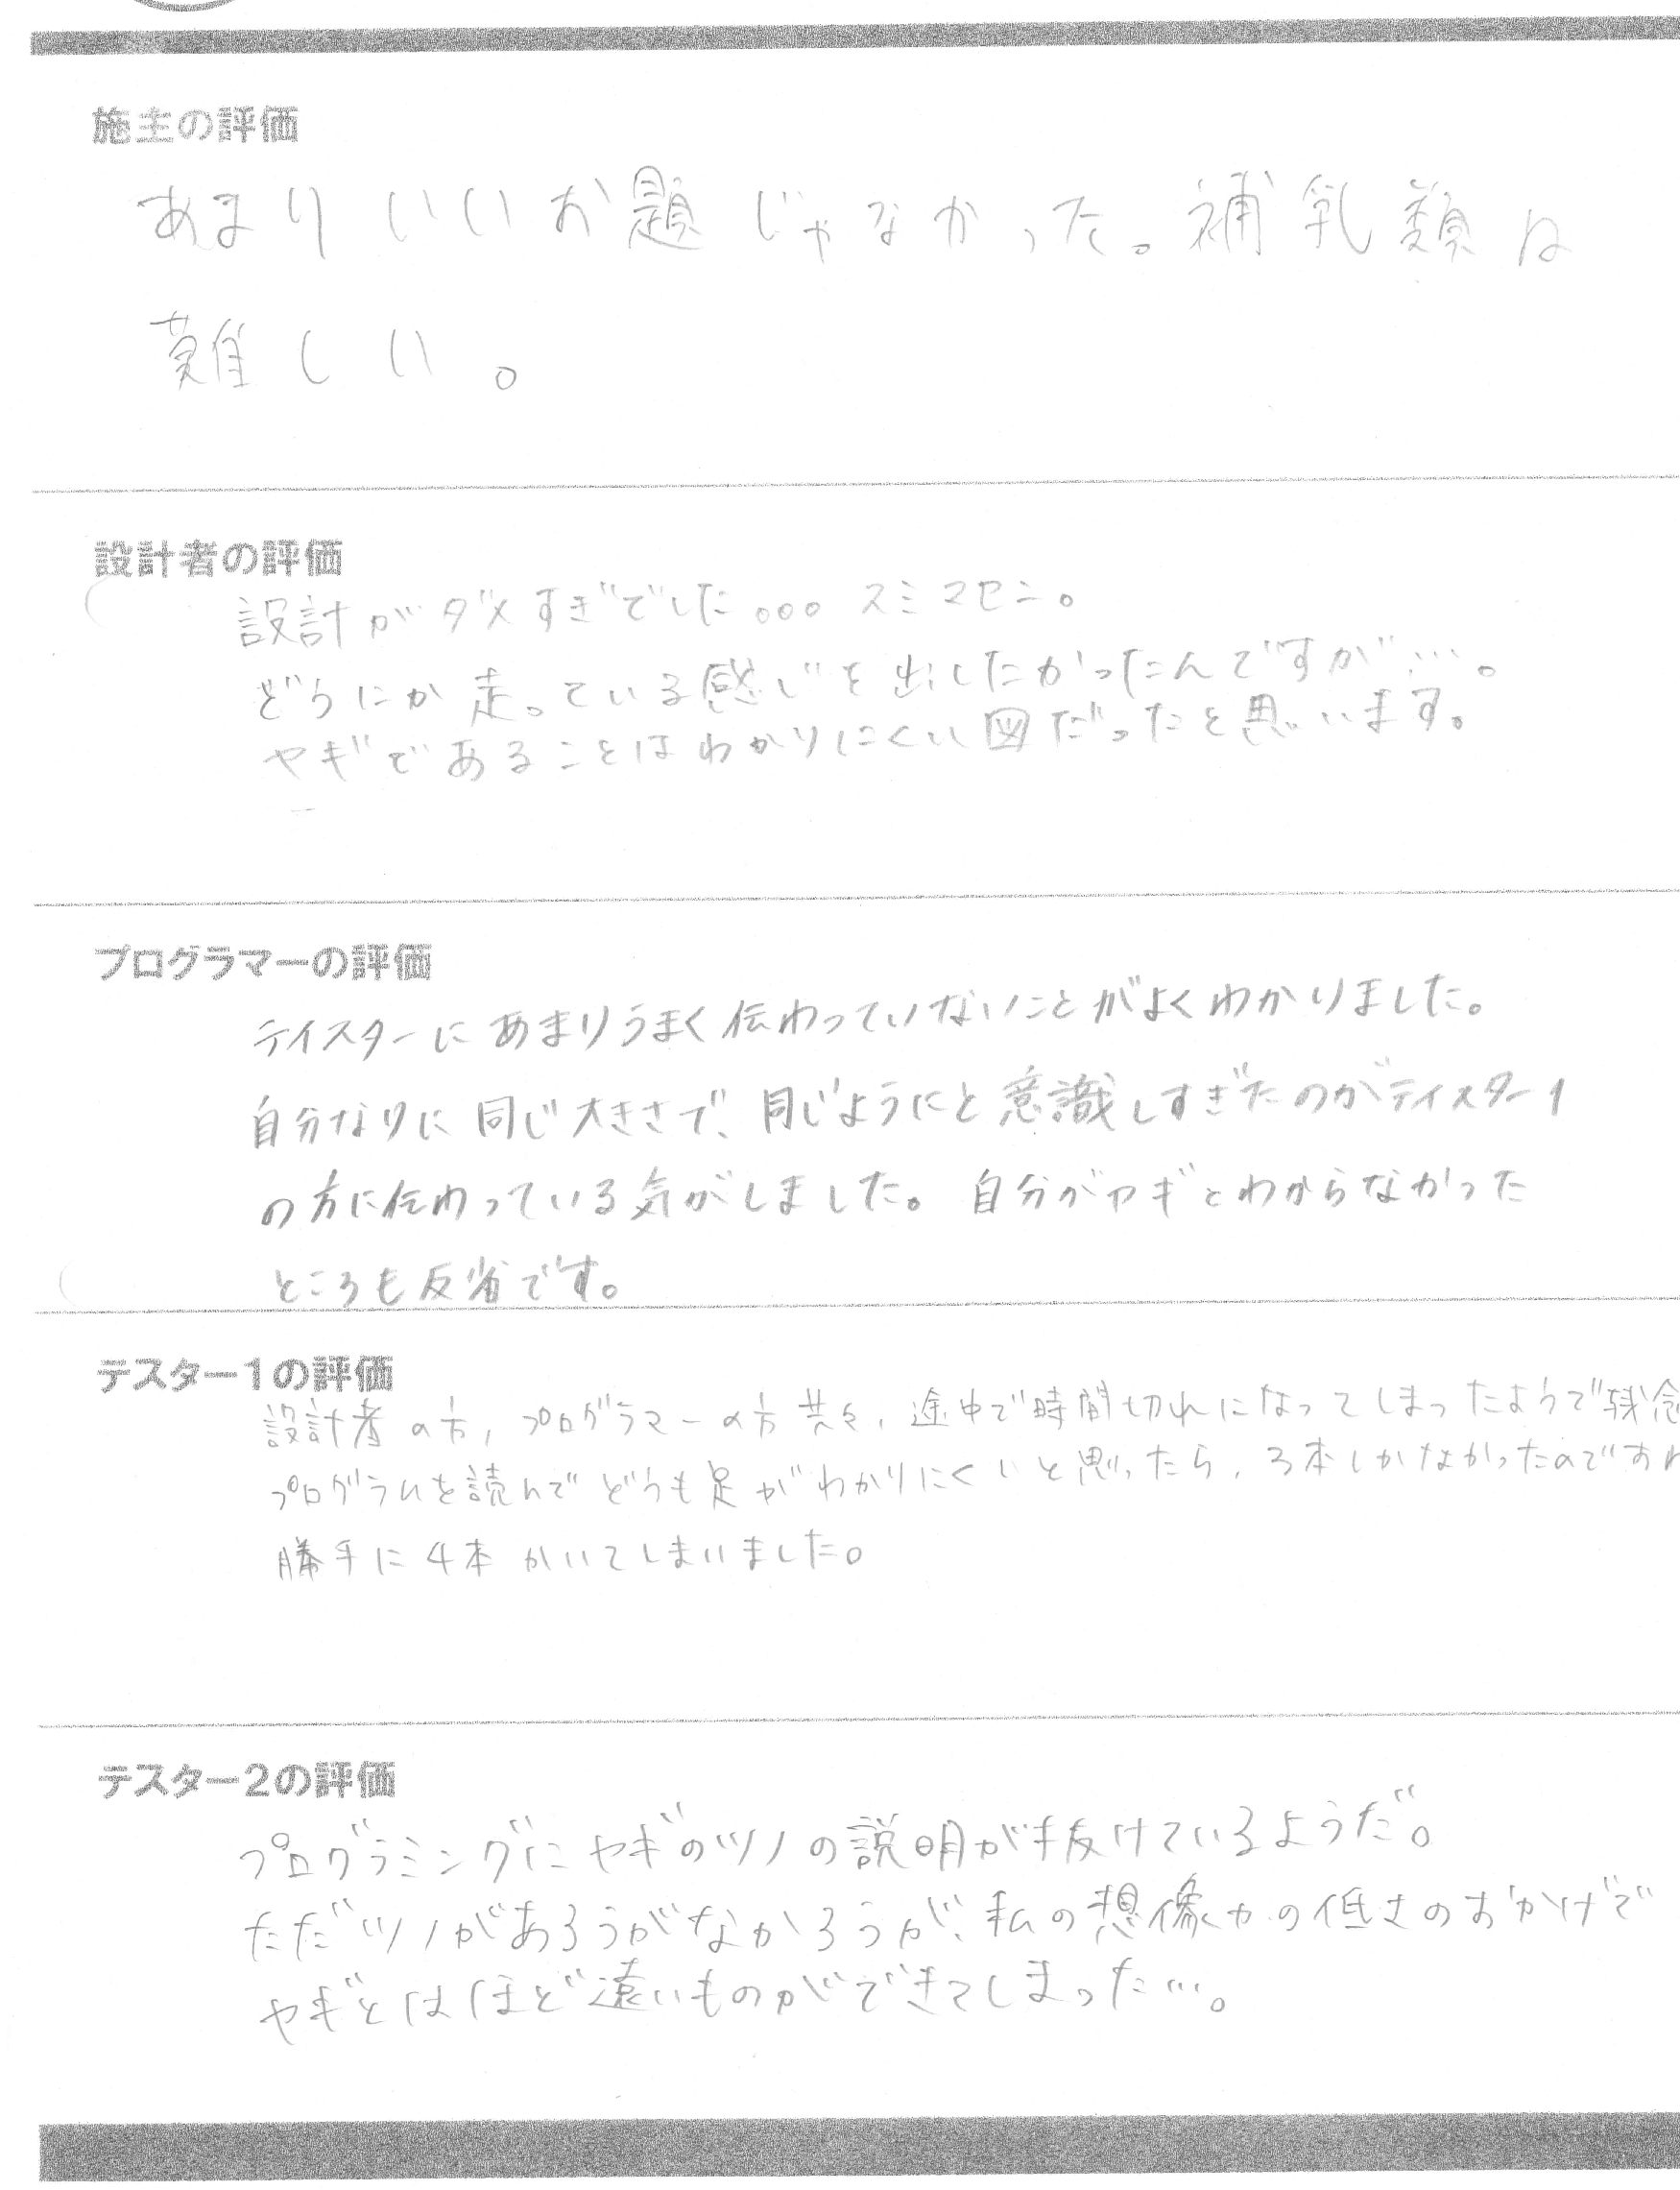 施主の評価
あまりいいお題じゃなかった。補乳類は
難しい。
設計者の評価
設計がダメすぎでした。。。スミマセン。
どうにか走っている感じを出したかったんですが…。
ヤギであることはわかりにくい図だったと思います。
プログラマーの評価
テイスターにあまりうまく伝わっていないことがよくわかりました。
自分なりに同じ大きさで、同じようにと意識しすぎたのがテイスター1
の方に伝わっている気がしました。自分がヤギとわからなかった
ところも反省です。
テスター1の評価
設計者の方,プログラマーの方共々,途中で時間切れになってしまったようで残念
プログラムを読んでどうも足がわかりにくいと思ったら,3本しかなかったのですね
勝手に4本かいてしまいました。
テスター2の評価
プログラミングにヤギのツノの説明が抜けているようだ。
ただツノがあろうがなかろうが、私の想像力の低さのおかげで
ヤギとはほど遠いものができてしまった…。